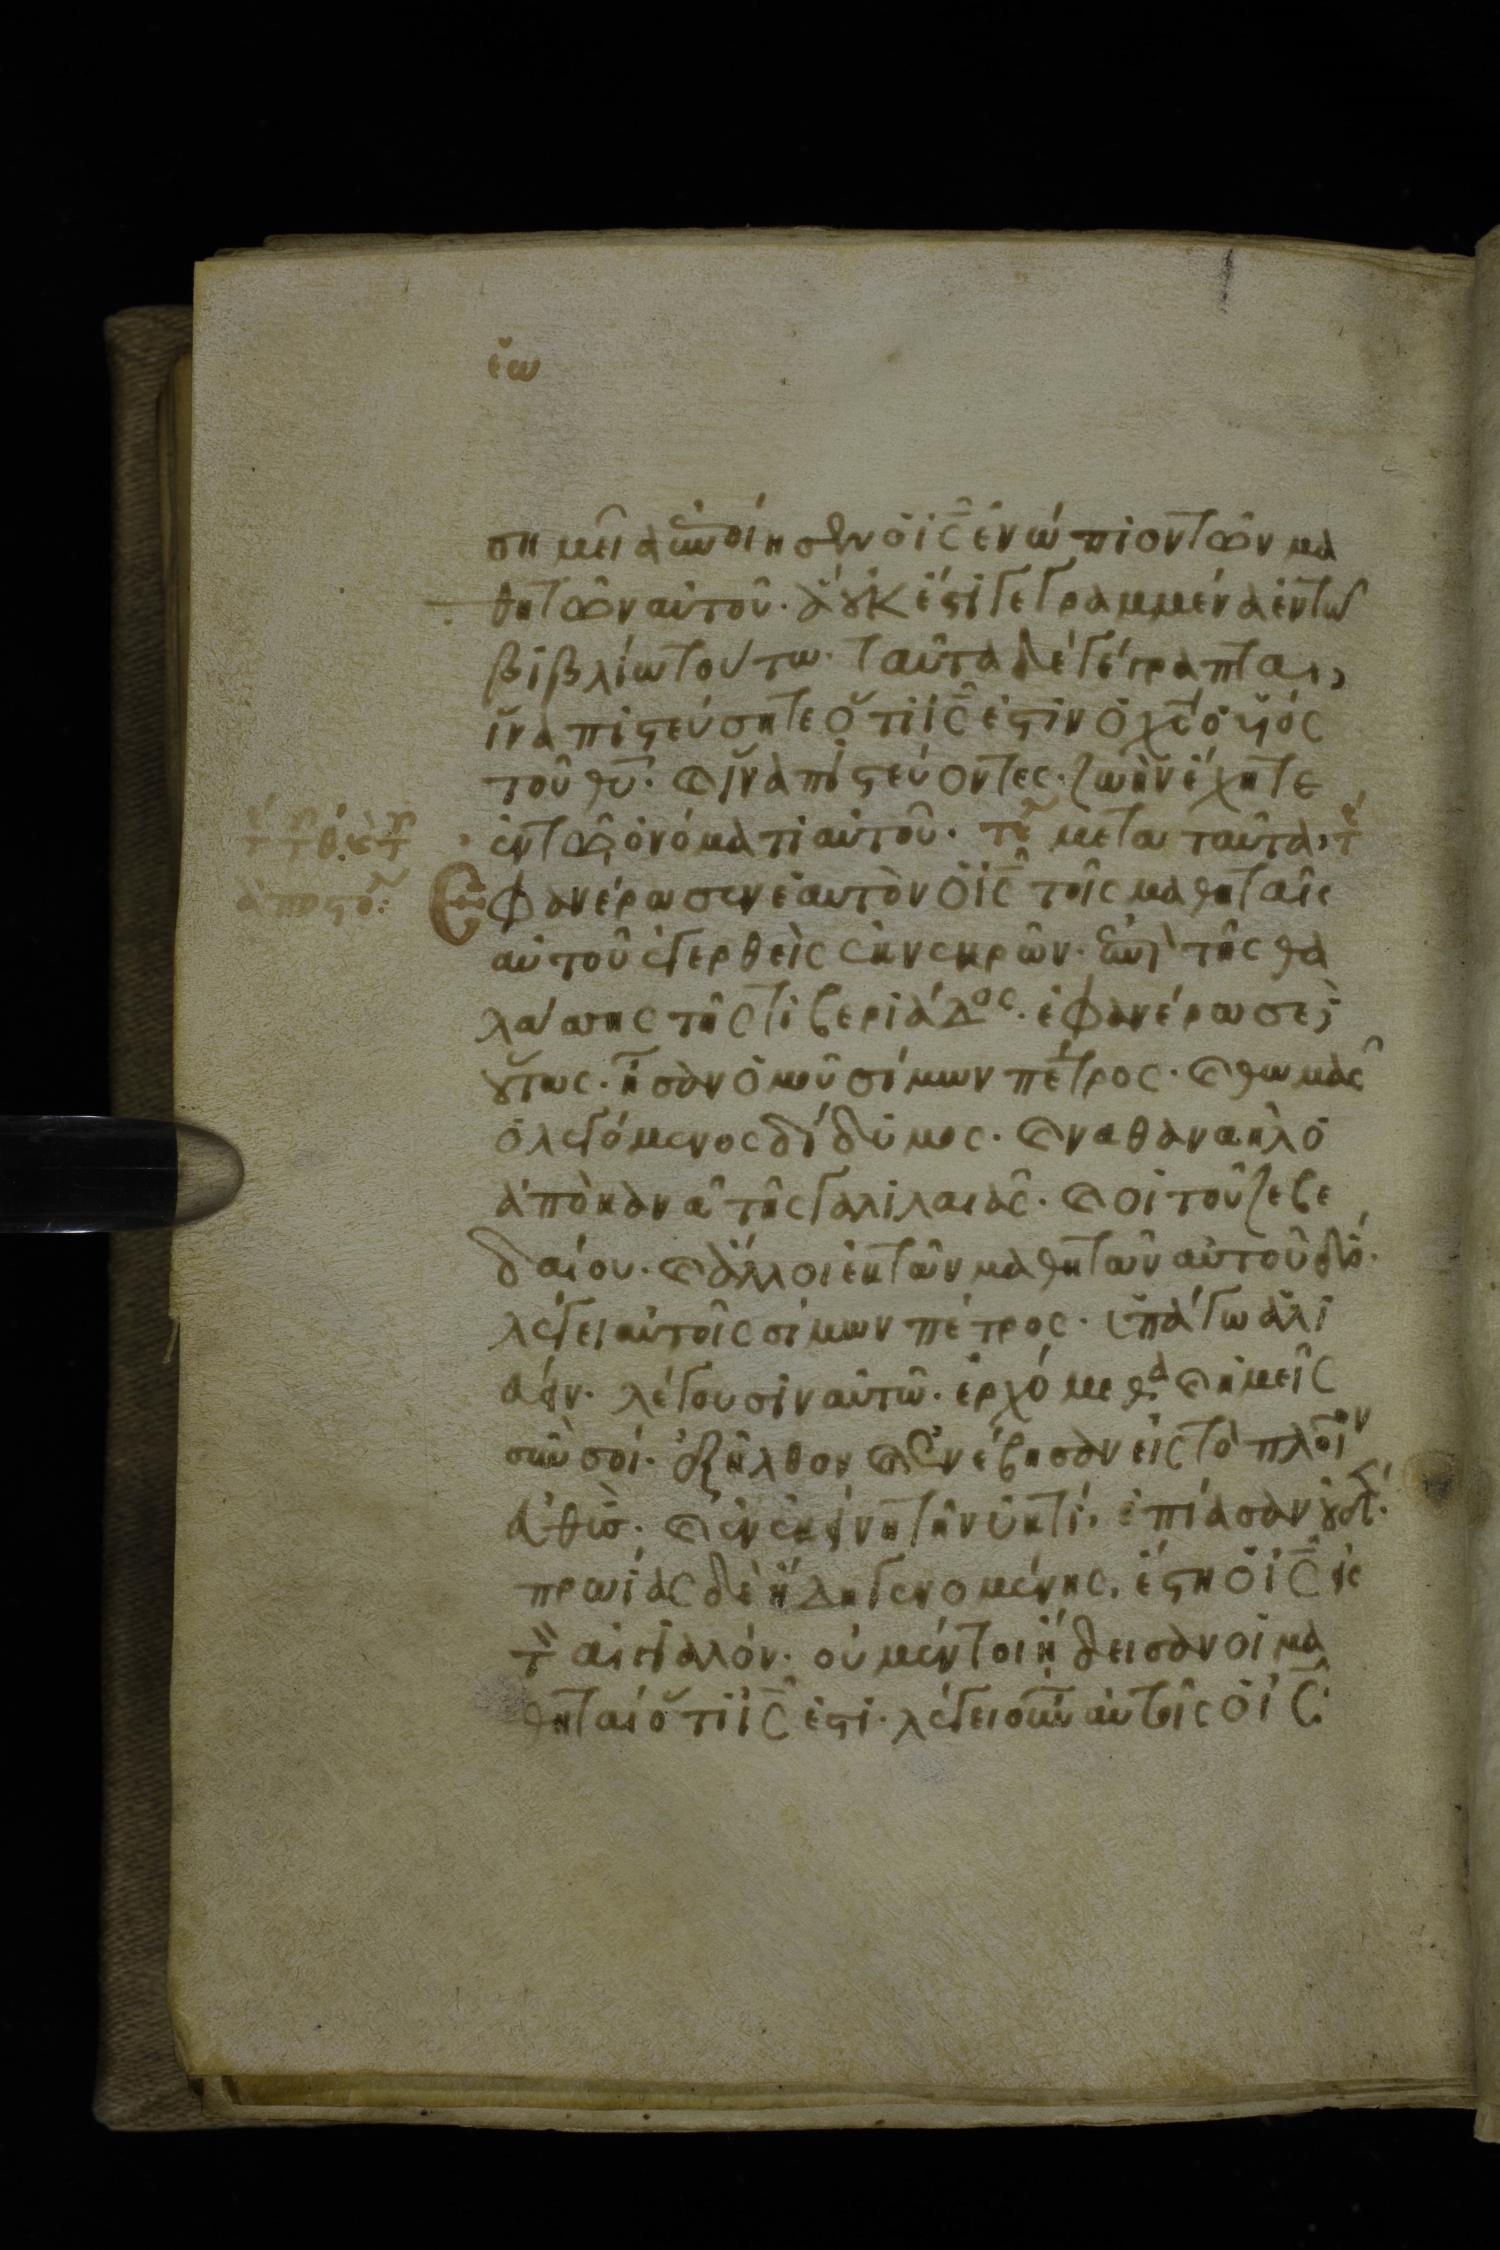 ἰω
σημεῖα ἐποίησεν ὁ ἰς ἐνώπιον τῶν μα
θητῶν αὐτοῦ· ἃ οὐκ ἔστι γεγραμμένα ἐν τῷ
βιβλίω τούτω· ταῦτα δὲ γέγραπται,
ἵνα πιστεύσητε ὅτι ἰς ἐστὶν ὁ χς ὁ υἱός
τοῦ θυ· καὶ ἵνα πιστεύοντες· ζωὴν ἔχητε
ἐν τῶ ὀνόματι αὐτοῦ· τε μετα ταῦτα,
Εφανέρωσεν ἑαυτὸν ὁ ἰς τοῖς μαθηταῖς
αὐτοῦ ἐγερθεὶς ἐκ νεκρῶν· ἐπὶ τῆς θα
λάσσης τῆς τιβεριάδος· ἐφανέρωσε δὲ
οὕτως· ἦσαν ὁμοῦ σίμων πέτρος· καὶ θωμᾶς
ὁ λεγόμενος δίδυμος· καὶ ναθαναὴλ ὁ
ἀπὸ κανᾶ τῆς γαλιλαιας· καὶ οἱ τοῦ ζεβε
δαίου· καὶ ἄλλοι ἐκ τῶν μαθητῶν αὐτοῦ δύο·
λέγει αὐτοῖς σίμων πέτρος· ὑπάγω ἁλι
εύειν· λέγουσιν αὐτῶ· ἐρχόμεθα καὶ ἡμεῖς
σὺν σοί· ἐξῆλθον καὶ ἐνέβησαν εἰς τὸ πλοῖον
εὐθὺς· καὶ ἐν ἐκείνη τῆ νυκτί, ἐπίασαν οὐδέν·
πρωίας δὲ ἤδη γενομένης, ἔστη ὁ ἰς εἰς
τὸν αἰγιαλόν· οὐ μέντοι ἤδεισαν οἱ μα
θηταί ὅτι ἰς ἐστι· λέγει οὖν αὐτοῖς ὁ ἰς·